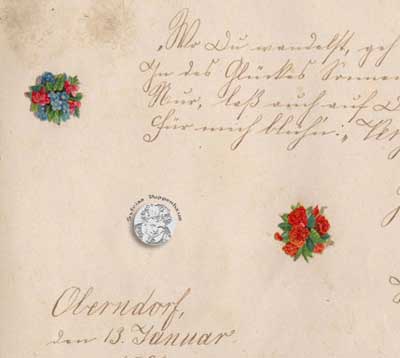 „Wo Du wandelst, geh
In des Glückes Sonnen
Nur, laß auch auf D
Für mich blüh'n.“ Ver
Sabines Puppenhaus
Oberndorf,
den 13. Januar